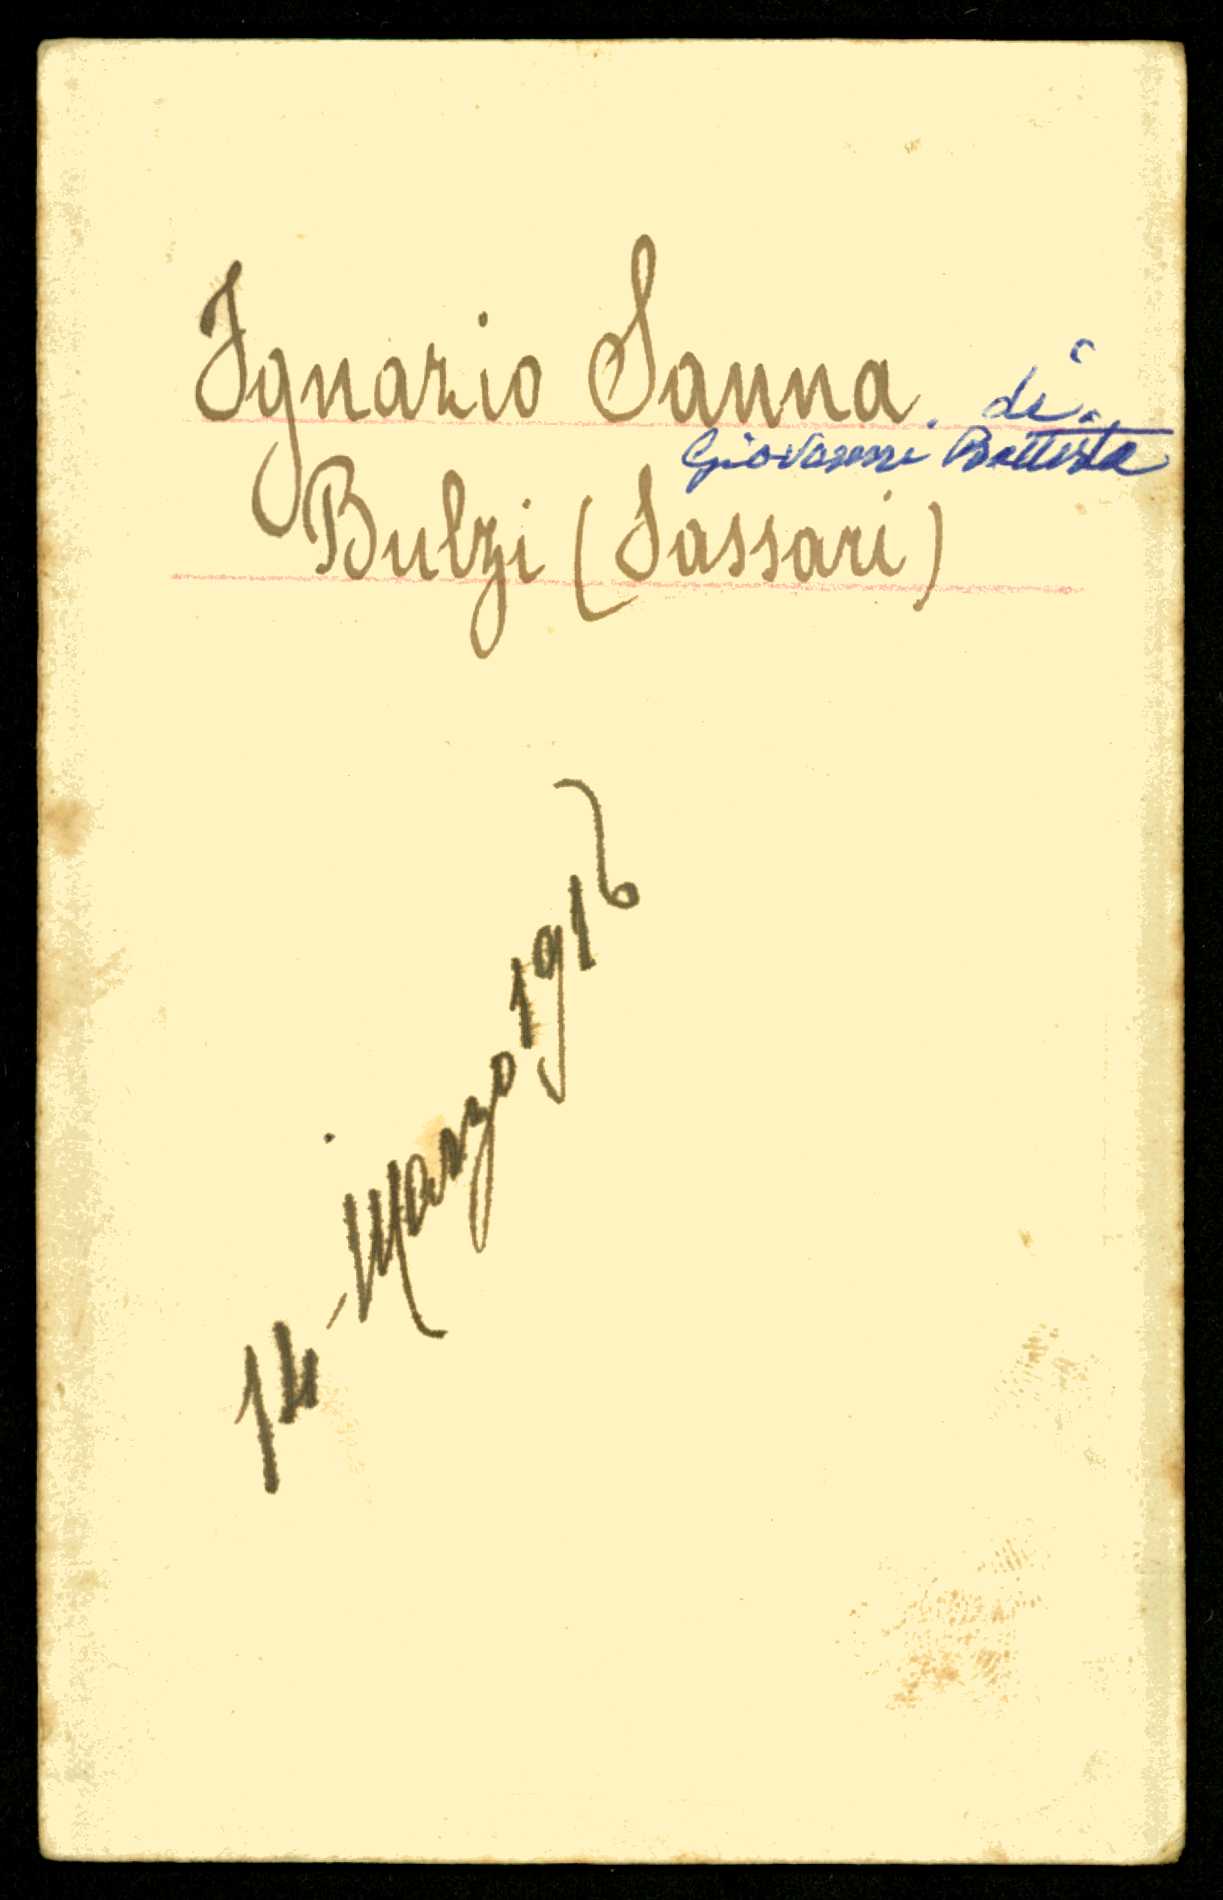 Ignazio Sanna. di
Giovanni Battista
Bulzi (Sassari)
14 - Marzo 1916